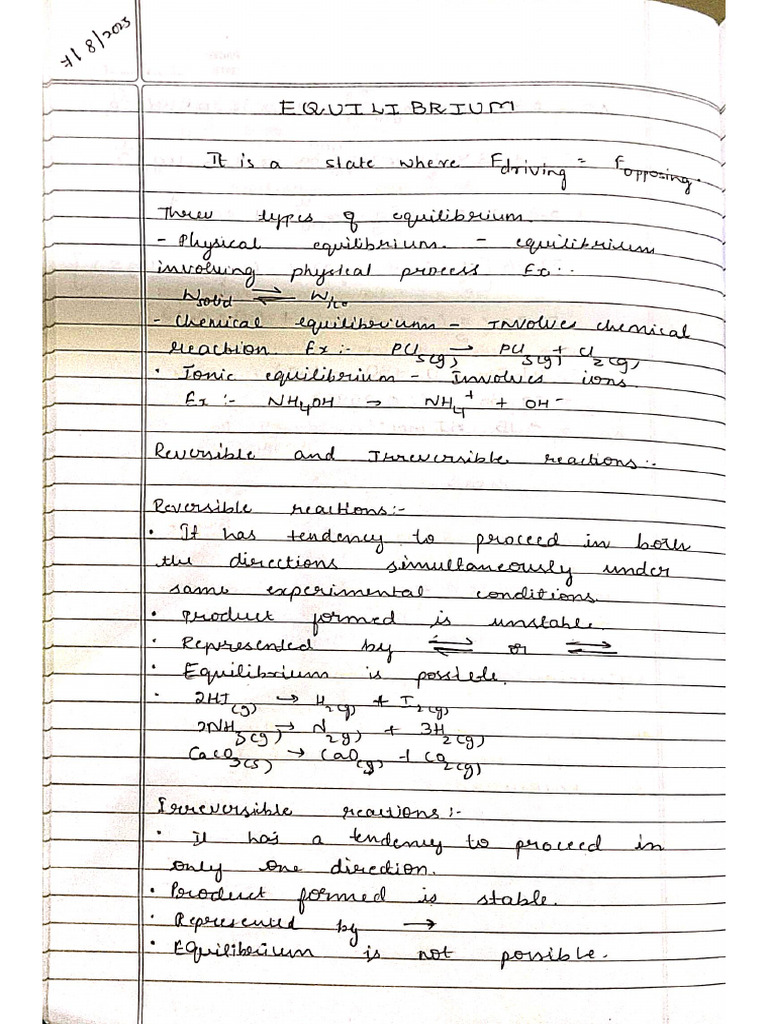 7/8/2023
EQUILIBRIUM
It is a state where F driving = F opposing.
Three types of equilibrium.
- Physical equilibrium - equilibrium
involving physical process Ex:-
W solid ⇌
- Chemical equilibrium - Involves chemical
reaction. Ex :- PCl5(g) → PCl3(g) + Cl2(g)
· Ionic equilibrium - Involves ions.
Ex :- NH4OH → NH4+ + OH-
Reversible and Irreversible reactions:-
Reversible reactions:-
· It has tendency to proceed in both
the directions simultaneously under
same experimental conditions.
· Product formed is unstable.
· Represented by ⇌ or ⇌
· Equilibrium is possible.
· 2HI(g) → H2(g) + I2(g)
2NH3(g) → N2(g) + 3H2(g)
CaCO3(s) → CaO(s) + CO2(g)
Irreversible reactions:-
· It has a tendency to proceed in
only one direction.
· Product formed is stable.
· Represented by →
· Equilibrium is not possible.